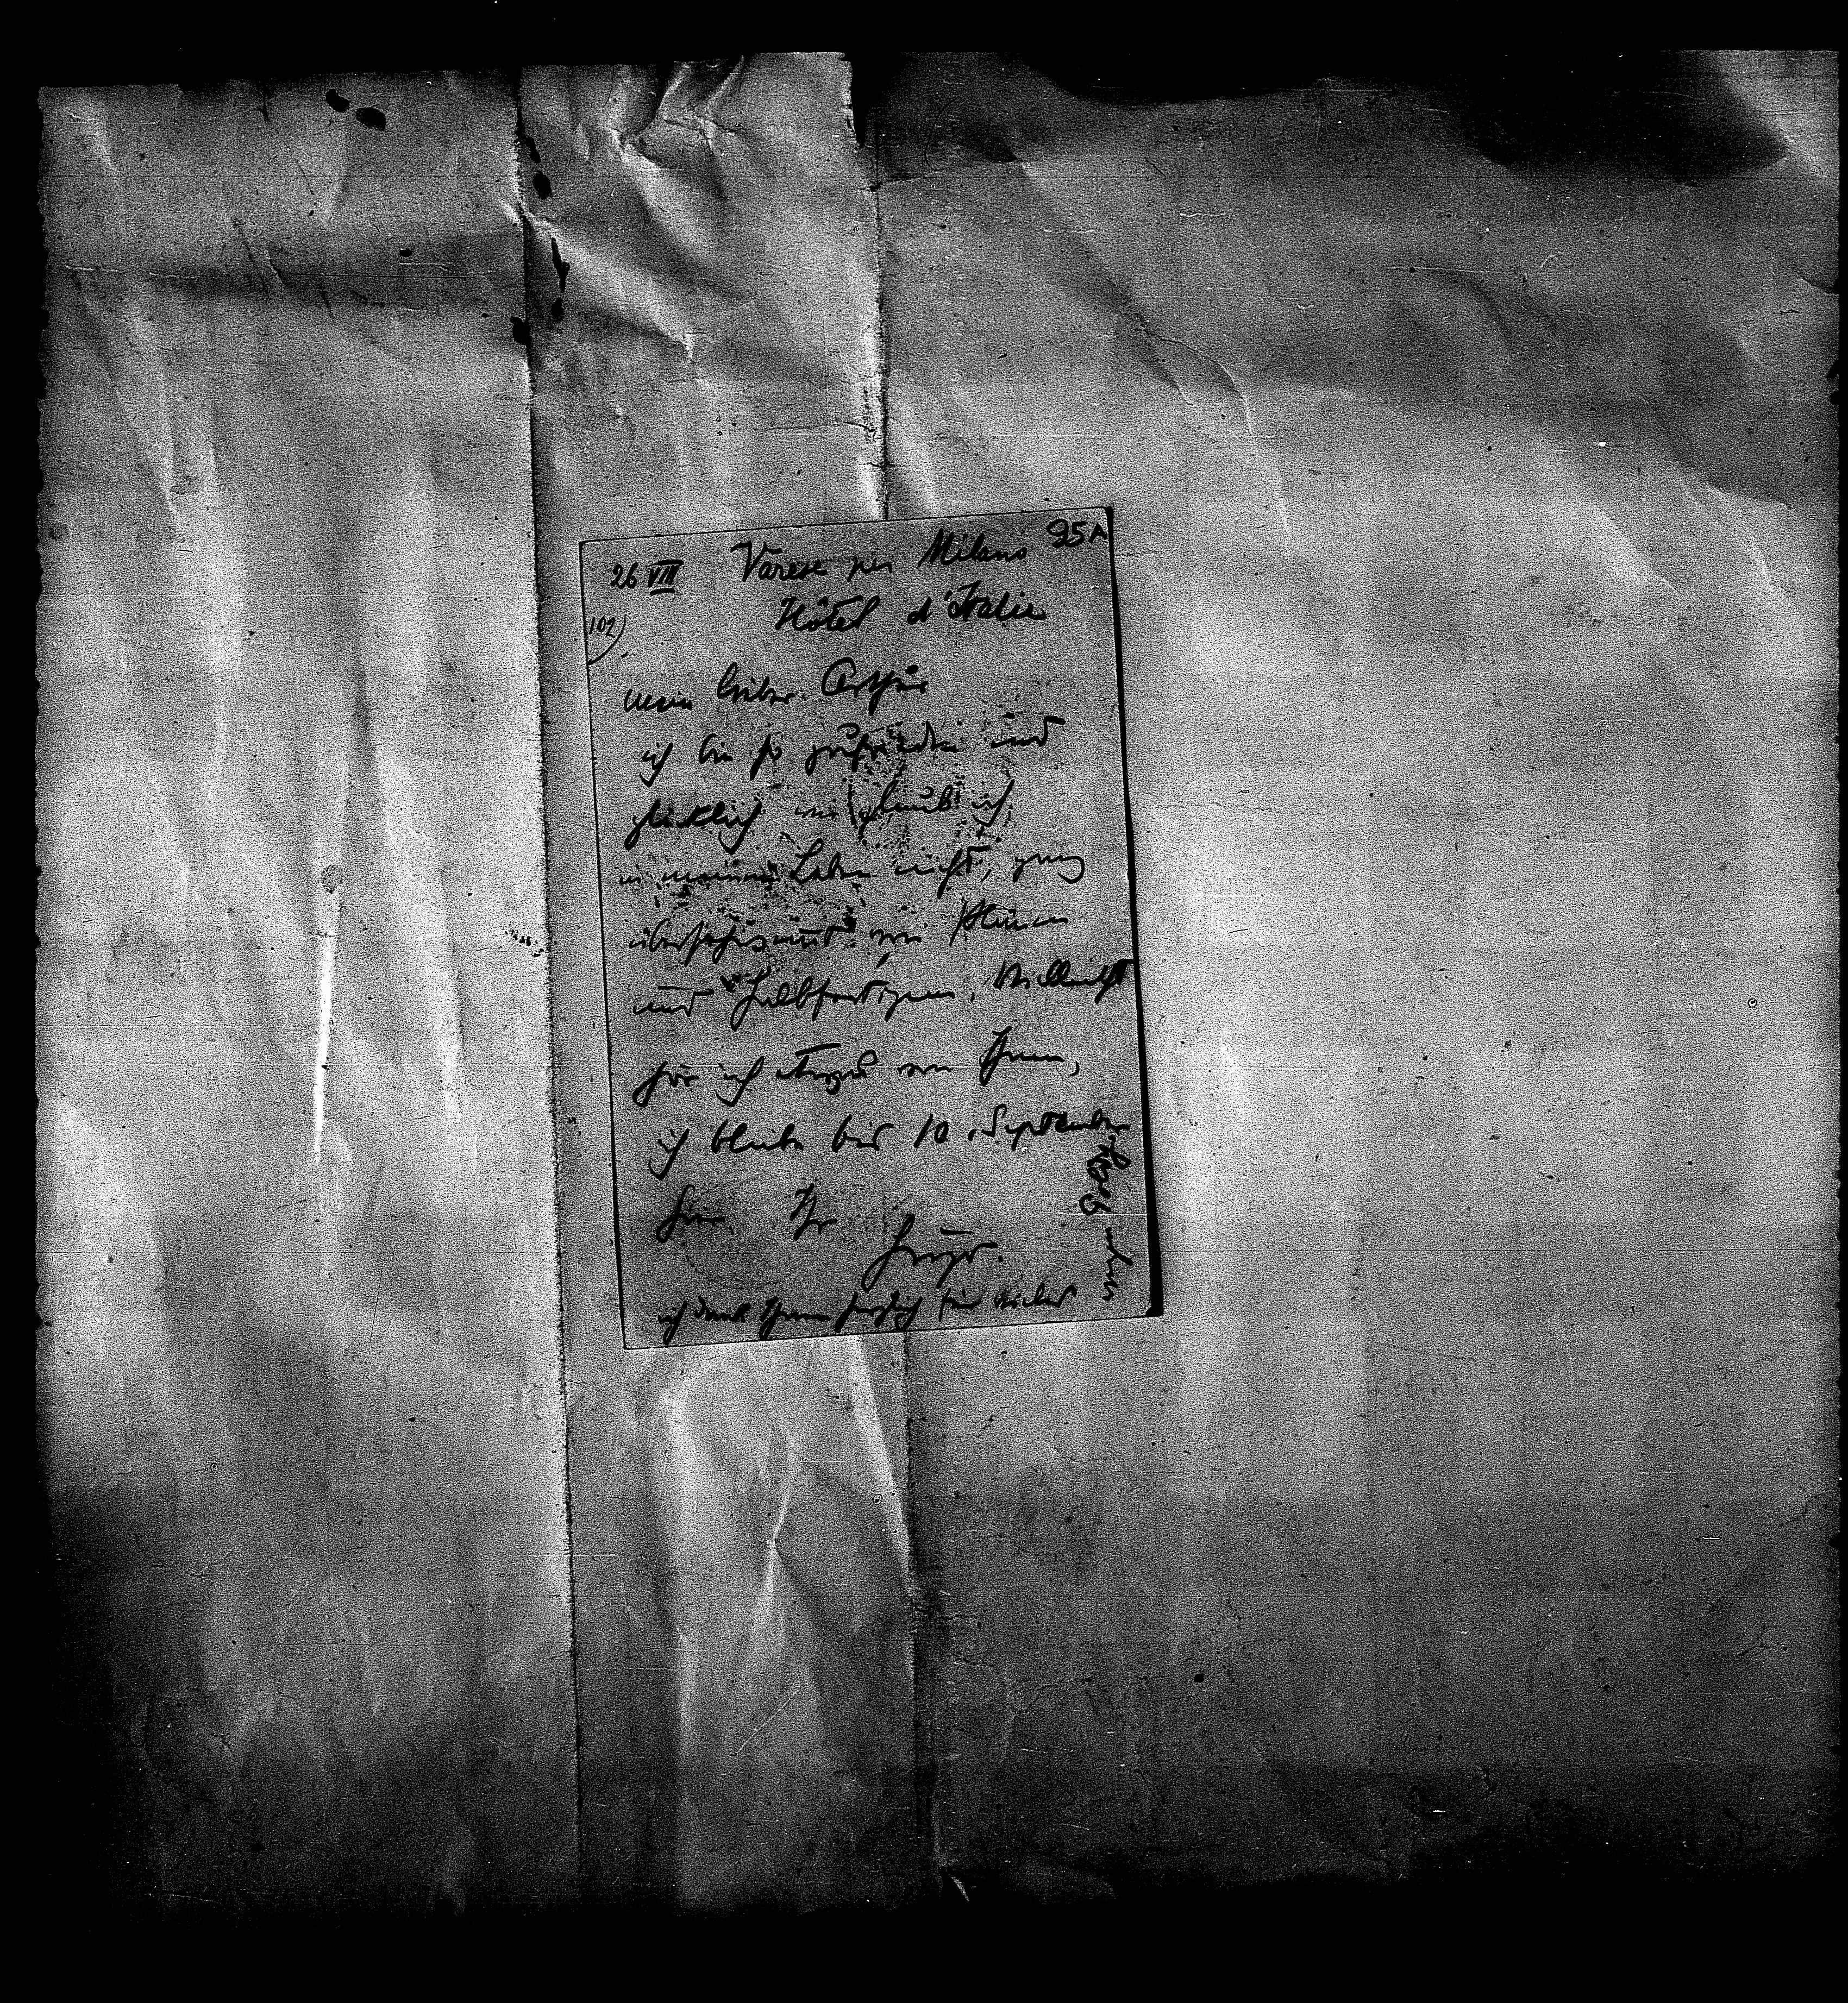 26 VIII Varese per Milano 95A
102)
Hôtel d'Italie
mein lieber Arthur
ich bin so zufrieden und
glücklich wie glaub ich
in meinem Leben nicht, ganz
überschwemmt von Plänen
und Halbfertigem, vielleicht
hör ich etwas von Ihnen,
ich bleibe bis 10. September
hier. Ihr
Hugo.
ich danke Ihnen herzlich für diesen